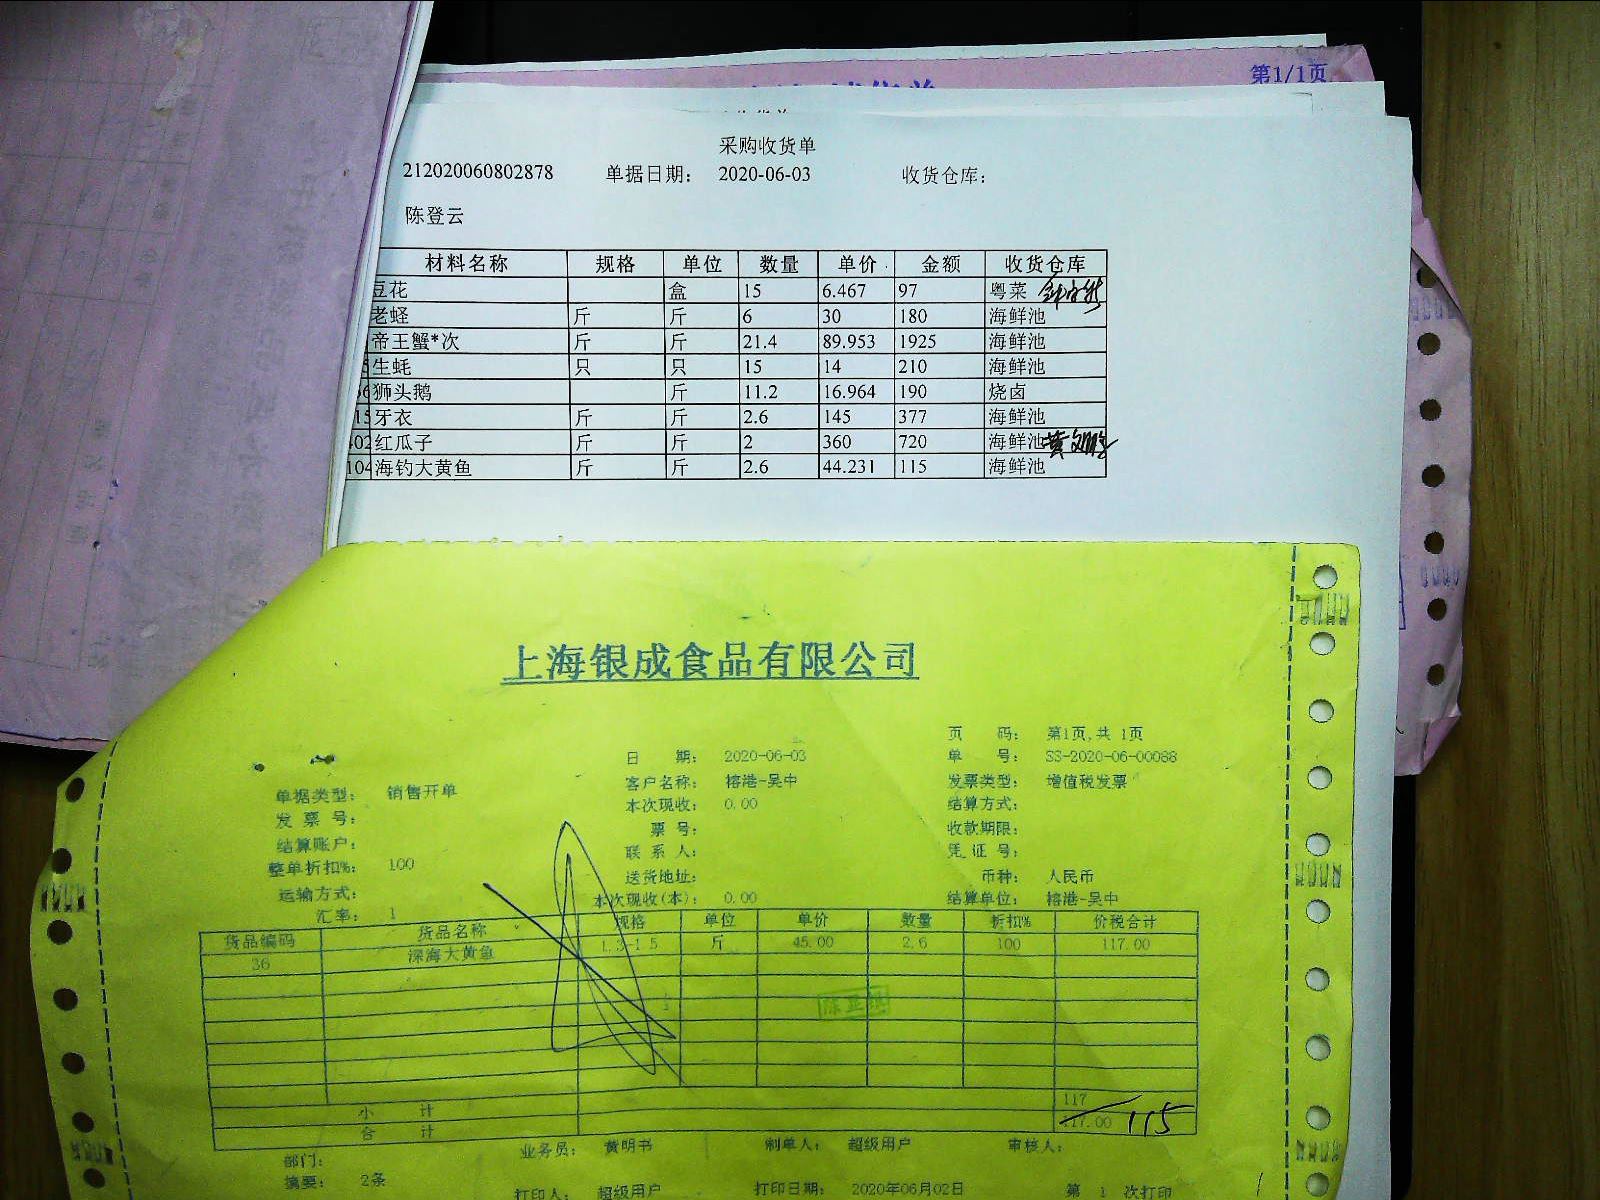 第1/1页
采购收货单
212020060802878 单据日期： 2020-06-03 收货仓库：
陈登云
材料名称 规格 单位 数量 单价 金额 收货仓库
豆花 盒 15 6.467 97 粤菜
老蛏 斤 斤 6 30 180 海鲜池
帝王蟹*次 斤 斤 21.4 89.953 1925 海鲜池
生蚝 只 只 15 14 210 海鲜池
狮头鹅 斤 11.2 16.964 190 烧卤
牙衣 斤 斤 2.6 145 377 海鲜池
红瓜子 斤 斤 2 360 720 海鲜池
海钓大黄鱼 斤 斤 2.6 44.231 115 海鲜池
上海银成食品有限公司
页 码： 第1页,共 1页
日 期： 2020-06-03 单 号： SS-2020-06-00088
单据类型： 销售开单 客户名称： 榕港-吴中 发票类型： 增值税发票
发 票 号： 本次现收： 0.00 结算方式：
结算账户： 票 号： 收款期限：
整单折扣%： 100 联 系 人： 凭 证 号：
运输方式： 送货地址： 币种： 人民币
汇率： 1 本次现收(本)： 0.00 结算单位： 榕港-吴中
货品编码 货品名称 规格 单位 单价 数量 折扣% 价税合计
36 深海大黄鱼 斤 45.00 2.6 100 117.00
小 计 117
合 计 117.00 115
业务员： 黄明书 制单人： 超级用户 审核人：
部门：
摘要： 2条 打印人： 超级用户 打印日期： 2020年06月02日 第 1 次打印